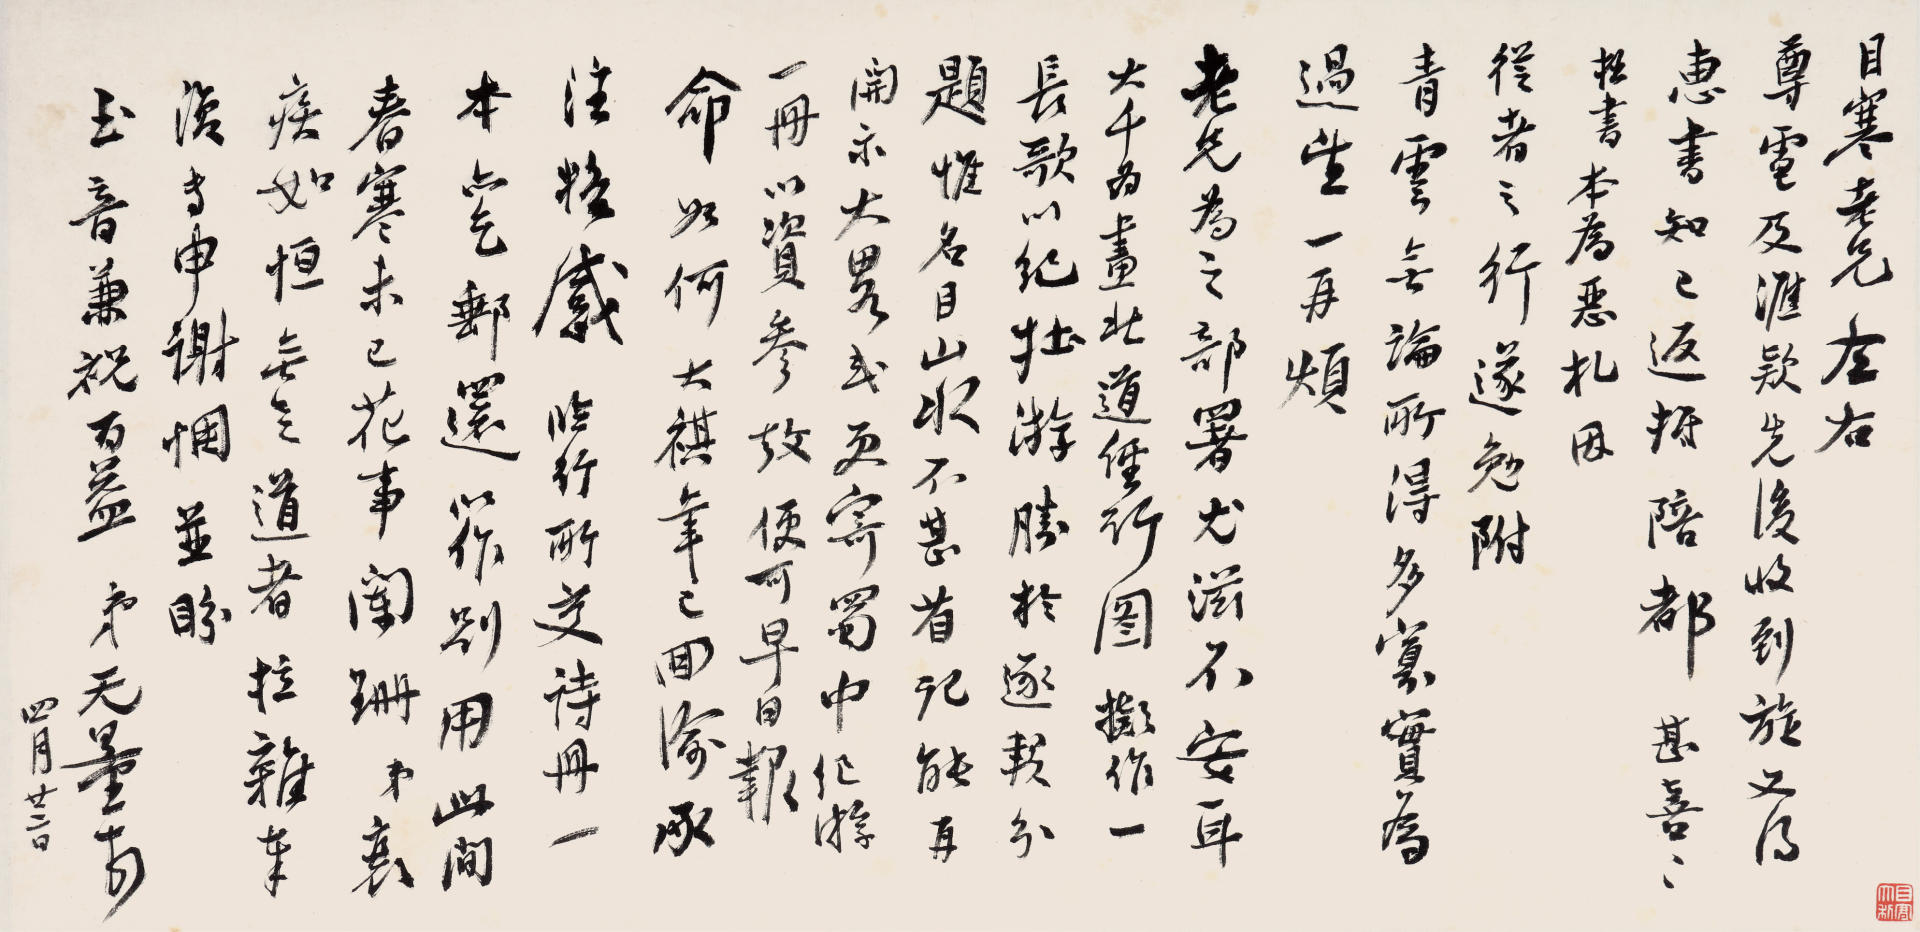 目寒老兄左右
尊電及滙款先後收到旋又得
惠書知已返旆陪都甚喜甚喜
拙書本為惡札因
從者之行遂勉附
青雲無論所得多寡實為
過望一再煩
老兄為之部署尤滋不安耳
大千為畫北道經行圖擬作一
長歌以紀壯游勝於逐段分
題惟名目山水不甚省記能再
開示大略或更寄蜀中紀游
一冊以資參考便可早日報
命如何大祺年已回渝承
注極感臨行所交詩冊一
本亦乞郵還以作別用此間
春寒未已花事闌珊弟衰
疾如恒無足道者拉雜奉
復專申謝悃並盼
玉音兼祝百益弟无量頓
四月廿二日